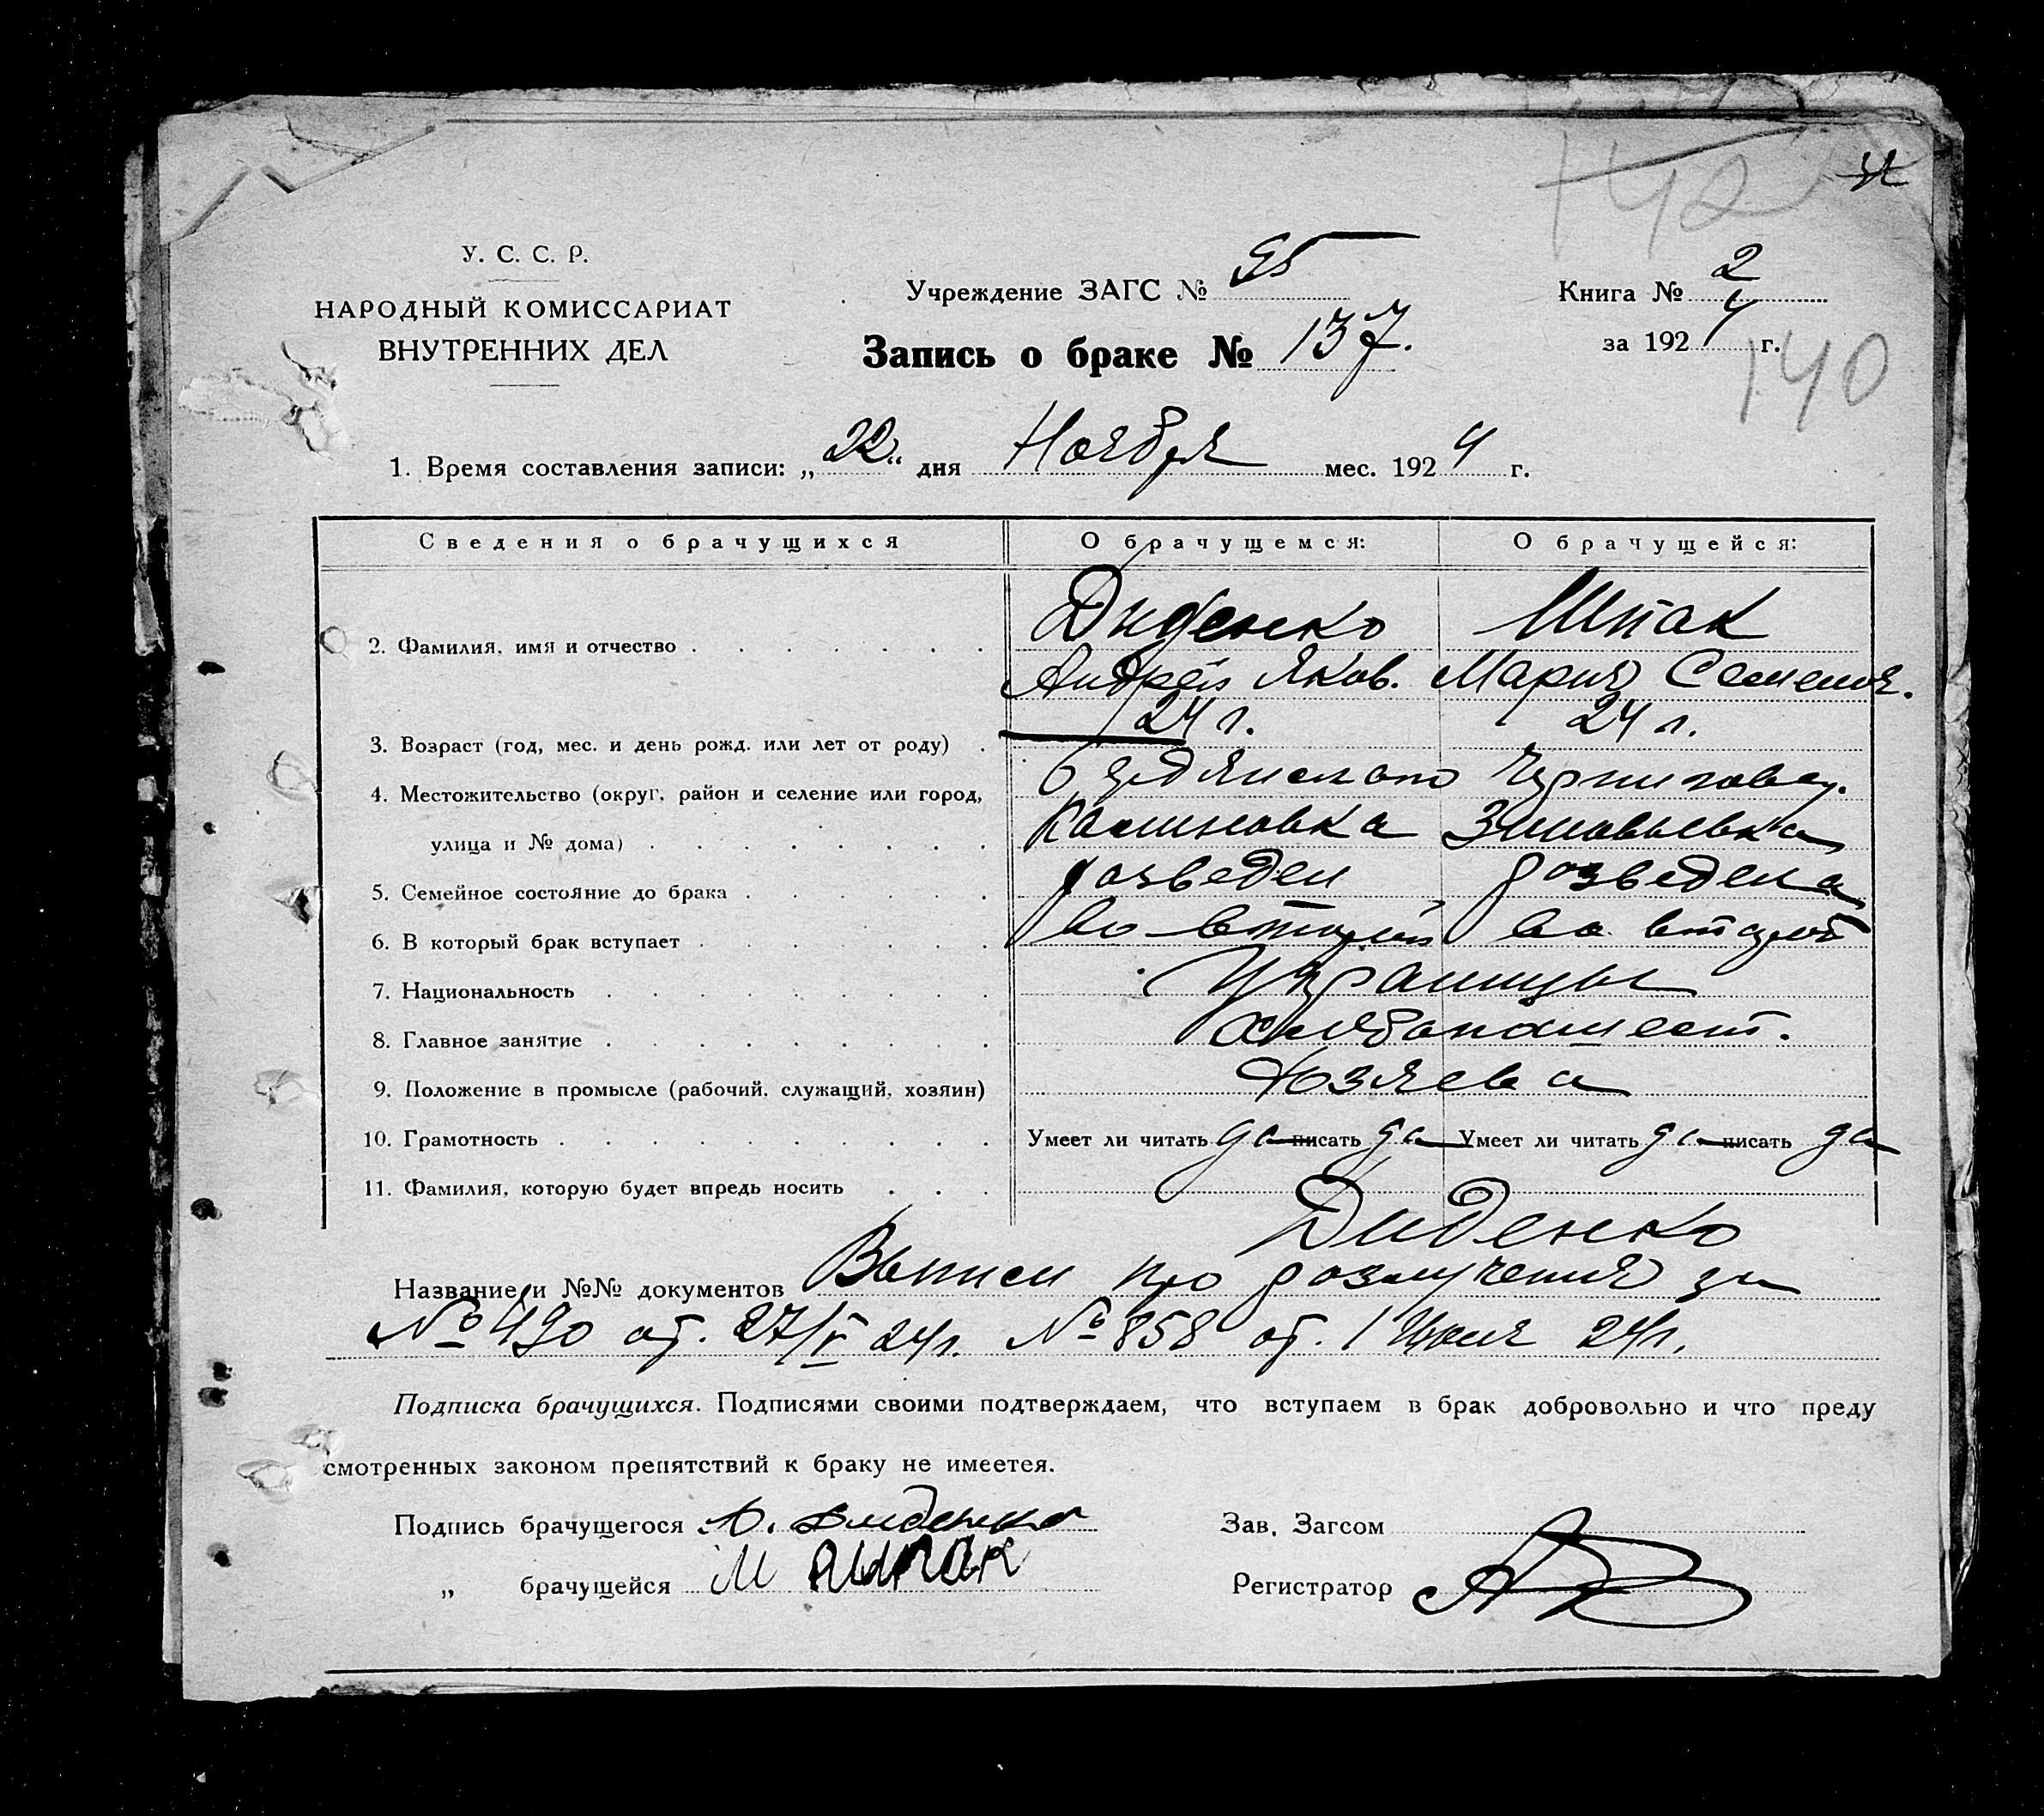 142
140
У. С. С. Р.
НАРОДНЫЙ КОМИССАРИАТ
ВНУТРЕННИХ ДЕЛ
Учреждение ЗАГС № 95
Книга № 2
за 1924 г.
Запись о браке № 137.
1. Время составления записи: „22“ дня Ноября мес. 1924 г.
Сведения о брачущихся О брачущемся: О брачущейся:
2. Фамилия, имя и отчество Диденко Шпак
Андрей Яков. Мария Семенов.
3. Возраст (год, мес. и день рожд. или лет от роду) 24 г. 24 л.
4. Местожительство (округ, район и селение или город, Чернигов
улица и № дома) Калиновка Зиновьевка
5. Семейное состояние до брака розведен розведена
6. В который брак вступает во второй во второй
7. Национальность Украинцы
8. Главное занятие хлебопашест.
9. Положение в промысле (рабочий, служащий, хозяин) Хозяева
10. Грамотность Умеет ли читать да писать да Умеет ли читать да писать да
11. Фамилия, которую будет впредь носить Диденко
Название и №№ документов Выписи про розлучения за
№ 490 от. 27/V 24 г. № 858 от. 1 Июля 24 г.
Подписка брачущихся. Подписями своими подтверждаем, что вступаем в брак добровольно и что преду
смотренных законом препятствий к браку не имеется.
Подпись брачущегося А. Диденко Зав. Загсом
„ брачущейся М Шпак Регистратор